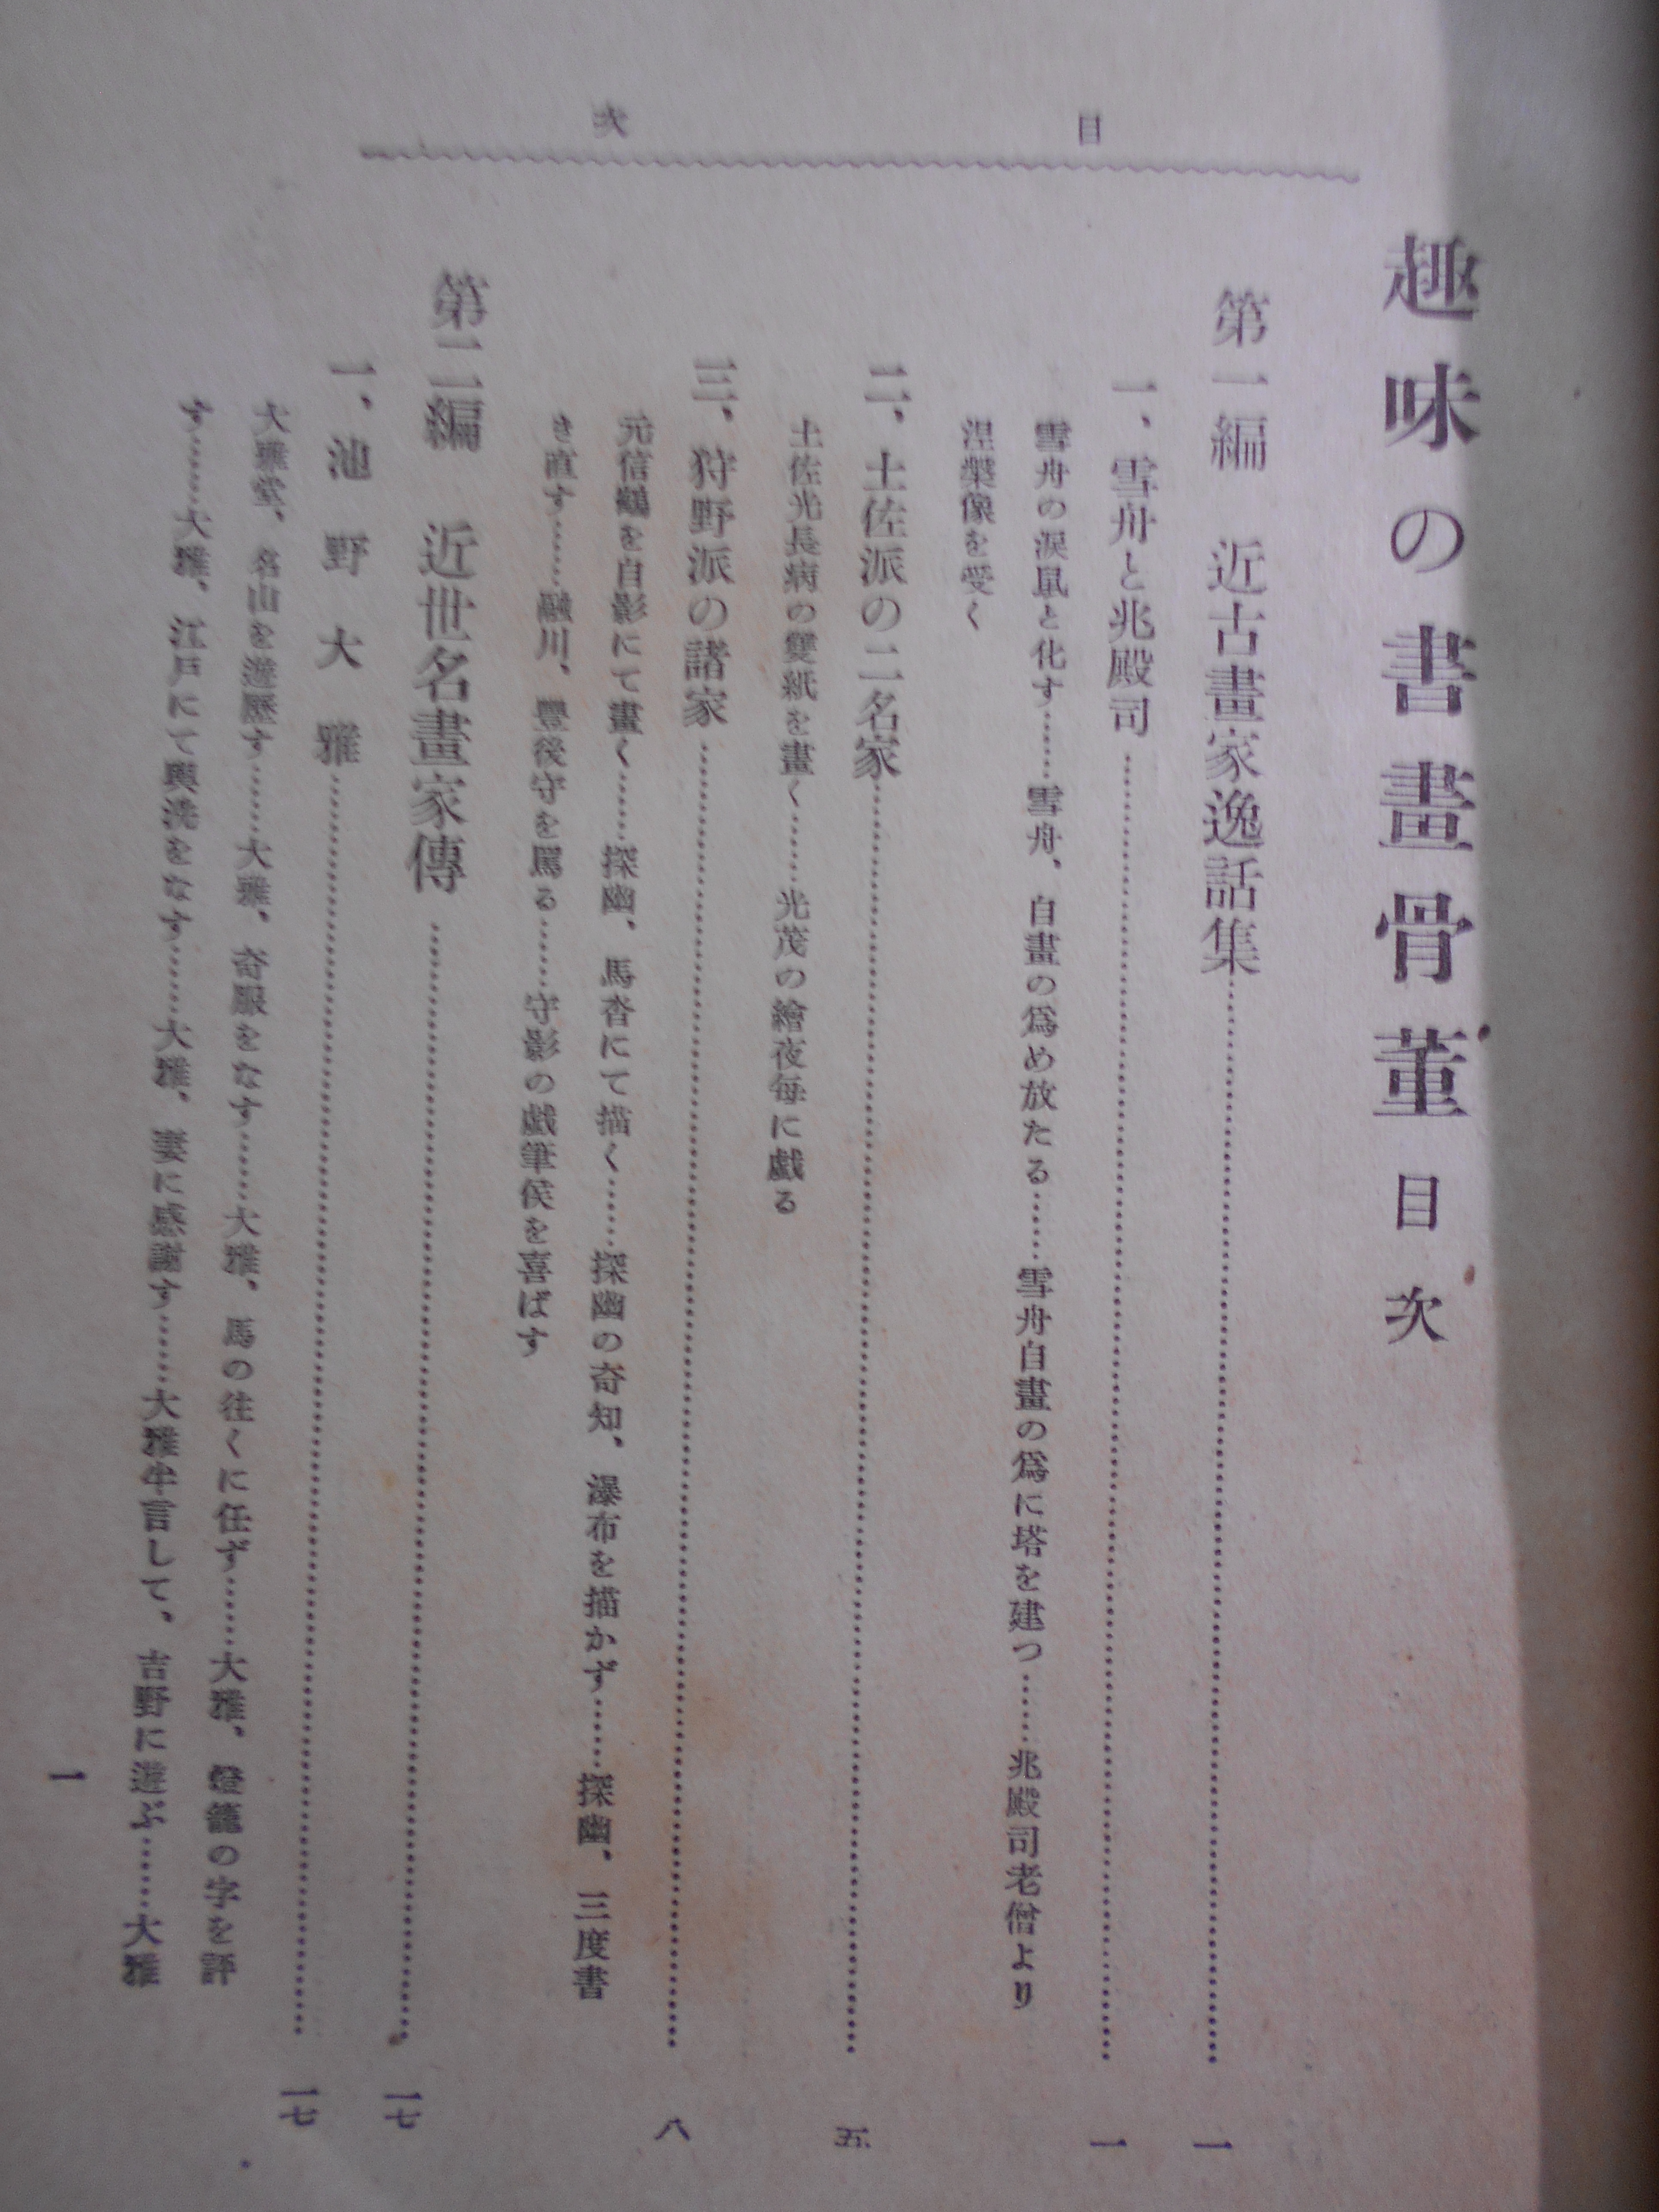 目次
趣味の書畫骨董 目次
第一編 近古畫家逸話集……一
一、雪舟と兆殿司……一
雪舟の淚鼠と化す……雪舟、自畫の爲め放たる……雪舟自畫の爲に塔を建つ……兆殿司老僧より
涅槃像を受く
二、土佐派の二名家……五
土佐光長病の雙紙を畫く……光茂の繪夜每に戲る
三、狩野派の諸家……八
元信鶴を自影にて畫く……探幽、馬沓にて描く……探幽の奇知、瀑布を描かず……探幽、三度書
き直す……融川、豐後守を罵る……守影の戯筆侯を喜ばす
第二編 近世名畫家傳……一七
一、池野大雅……一七
大雅堂、名山を遊歷す……大雅、奇服をなす……大雅、馬の往くに任ず……大雅、燈籠の字を評
す……大雅、江戶にて輿洗をなす……大雅、妻に感謝す……大雅牟言して、吉野に遊ぶ……大雅
一